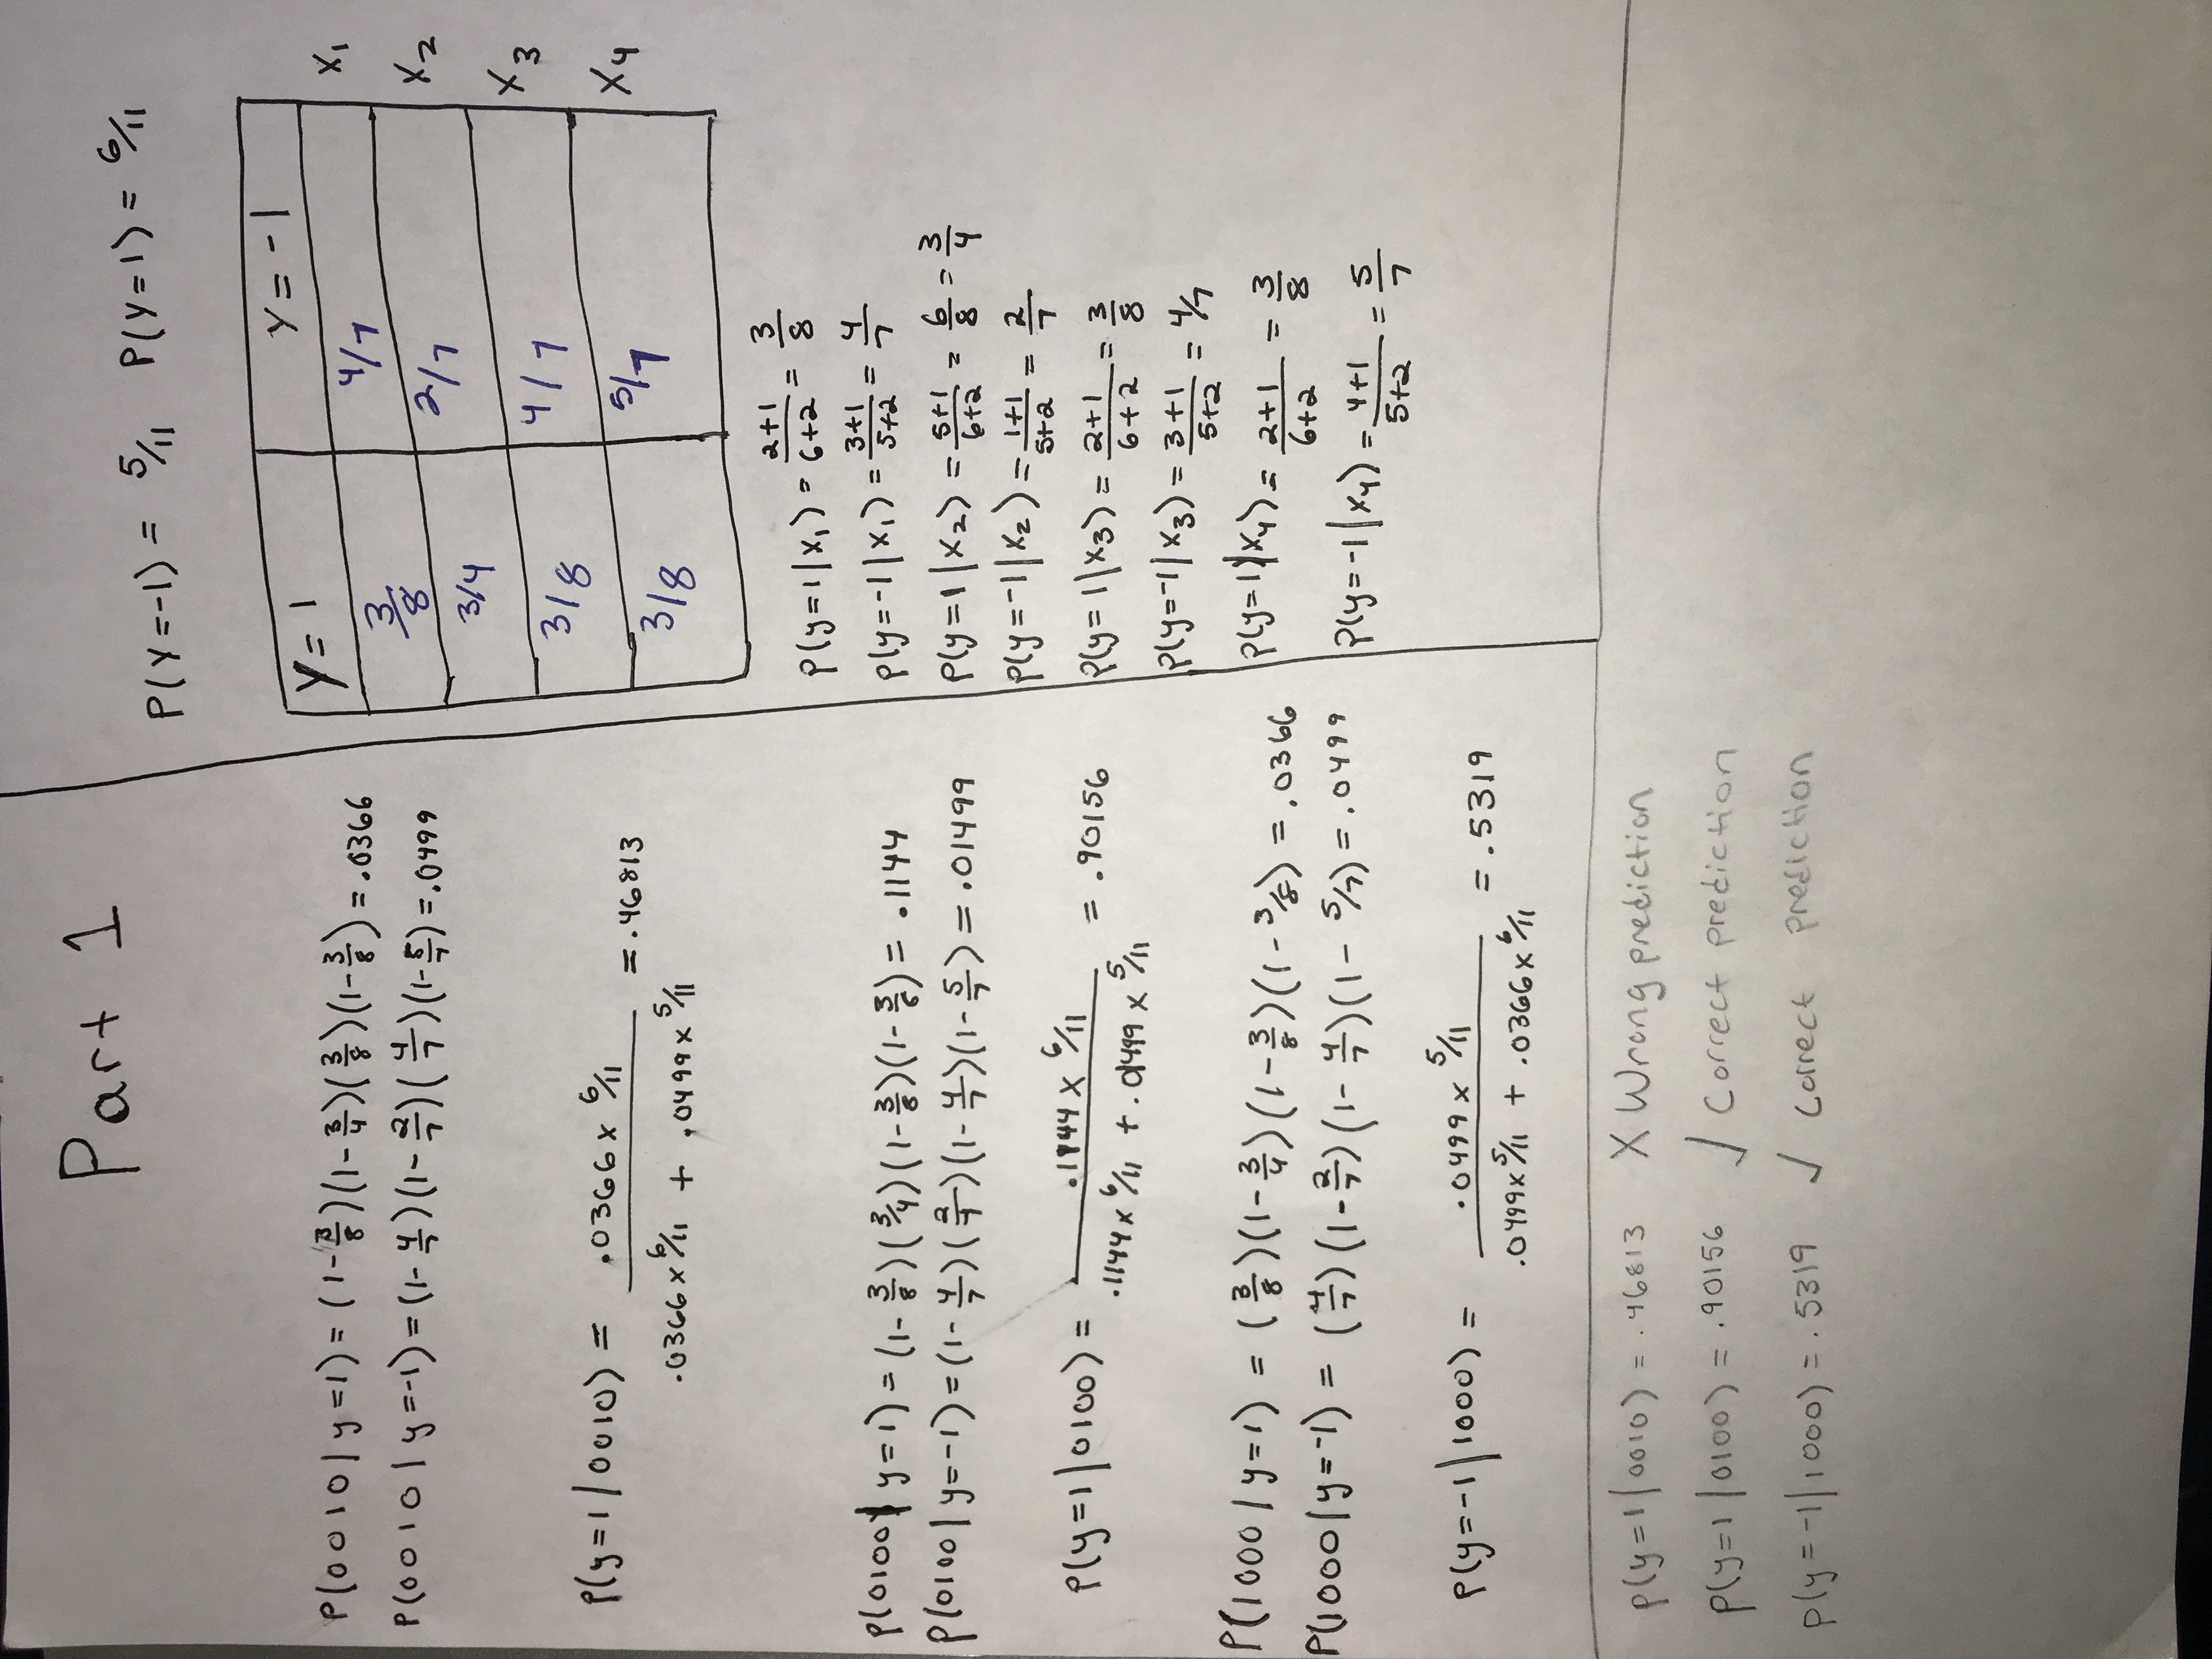 Part 1
P(0010|y=1) = (1-3/8)(1-3/4)(3/8)(1-3/8) = .0366
P(0010|y=-1) = (1-4/7)(1-2/7)(4/7)(1-5/7) = .0499
P(y=1|0010) = .0366 x 6/11 / .0366 x 6/11 + .0499 x 5/11 = .46813
P(0100|y=1) = (1-3/8)(3/4)(1-3/8)(1-3/8) = .1144
P(0100|y=-1) = (1-4/7)(2/7)(1-4/7)(1-5/7) = .01499
P(y=1|0100) = .1144 x 6/11 / .1144 x 6/11 + .01499 x 5/11 = .90156
P(1000|y=1) = (3/8)(1-3/4)(1-3/8)(1-3/8) = .0366
P(1000|y=-1) = (4/7)(1-2/7)(1-4/7)(1-5/7) = .0499
P(y=-1|1000) = .0499 x 5/11 / .0499 x 5/11 + .0366 x 6/11 = .5319
P(Y=-1) = 5/11 P(Y=1) = 6/11
Y=1 Y=-1
3/8 4/7 X1
3/4 2/7 X2
3/8 4/7 X3
3/8 5/7 X4
P(y=1|X1) = 2+1/6+2 = 3/8
P(y=-1|X1) = 3+1/5+2 = 4/7
P(y=1|X2) = 5+1/6+2 = 6/8 = 3/4
P(y=-1|X2) = 1+1/5+2 = 2/7
P(y=1|X3) = 2+1/6+2 = 3/8
P(y=-1|X3) = 3+1/5+2 = 4/7
P(y=1|X4) = 2+1/6+2 = 3/8
P(y=-1|X4) = 4+1/5+2 = 5/7
P(y=1|0010) = .46813 X Wrong prediction
P(y=1|0100) = .90156 ✓ Correct prediction
P(y=-1|1000) = .5319 ✓ Correct prediction